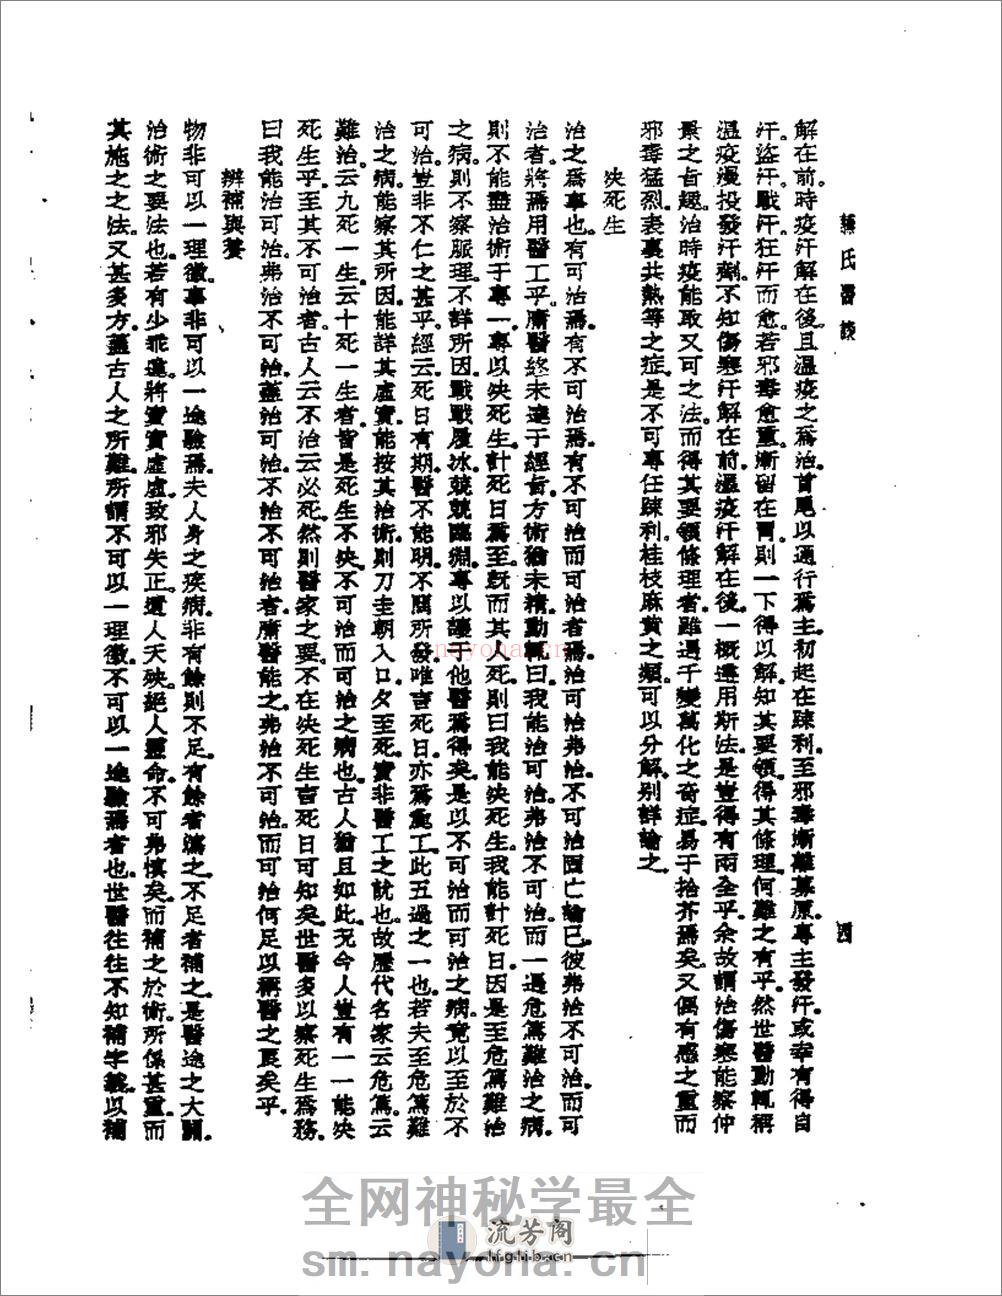 藤氏醫談
四
解在前。時疫汗解在後。且溫疫之爲治。首尾以通行爲主。初起在疎利。至邪毒漸離募原。專主發汗。或幸有得自
汗。盜汗。戰汗。狂汗而愈。若邪毒愈重。漸留在胃。則一下得以解。知其要領。得其條理。何難之有乎。然世醫動輒稱
溫疫漫投發汗劑。不知傷寒汗解在前。溫疫汗解在後。一概遵用斯法。是豈得有兩全乎。余故謂治傷寒。能察仲
景之旨趣。治時疫。能取又可之法。而得其要領條理者。雖遇千變萬化之奇症。易于拾芥焉矣。又偶有感之重而
邪毒猛烈。表裏共熱等之症。是不可專任疎利。桂枝麻黄之類。可以分解。别詳論之。
决死生
治之爲事也。有可治焉。有不可治焉。有不可治而可治者焉。治可治。弗治不可治。固亡論已。彼弗治不可治。而可
治者。將焉用醫工乎。庸醫終未達于經旨。方術猶未精。動輒曰我能治可治。弗治不可治。而一遇危篤難治之病。
則不能盡治術于專一。專以决死生。計死日爲至。既而其人死。則曰我能决死生。我能計死日。因是至危篤難治
之病。則不察脈理。不詳所因。戰戰履冰。兢兢臨淵。專以讓于他醫爲得矣。是以不可治而可治之病。竟以至於不
可治。豈非不仁之甚乎。經云。死日有期。醫不能明。不關所發。唯言死日。亦爲麄工。此五過之一也。若夫至危篤難
治之病。能察其所因。能詳其虛實。能按其治術。則刀圭朝入口。夕至死。實非醫工之訧也。故歷代名家云危篤。云
難治。云九死一生。云十死一生者。皆是死生不决。不可治而可治之病也。古人猶且如此。況今人豈有一一能决
死生乎。至其不可治者。古人云不治。云必死。然則醫家之要。不在决死生言死日可知矣。世醫多以察死生爲務。
曰我能治可治。弗治不可治。蓋治可治。不治不可治者。庸醫能之。弗治不可治。而可治。何足以稱醫之良矣乎。
辨補與養
物非可以一理徵。事非可以一途驗焉。夫人身之疾病。非有餘則不足。有餘者瀉之。不足者補之。是醫途之大關。
治術之要法也。若有少乖違。將實實虛虛。致邪失正。遺人夭殃。絕人靈命。不可弗慎矣。而補之於術。所係甚重。而
其施之之法。又甚多方。蓋古人之所難。所謂不可以一理徵。不可以一途驗焉者也。世醫往往不知補字義。以補
nayona.cn
全网神秘学最全
流芳阁
lfglib.cn
sm.nayona.cn